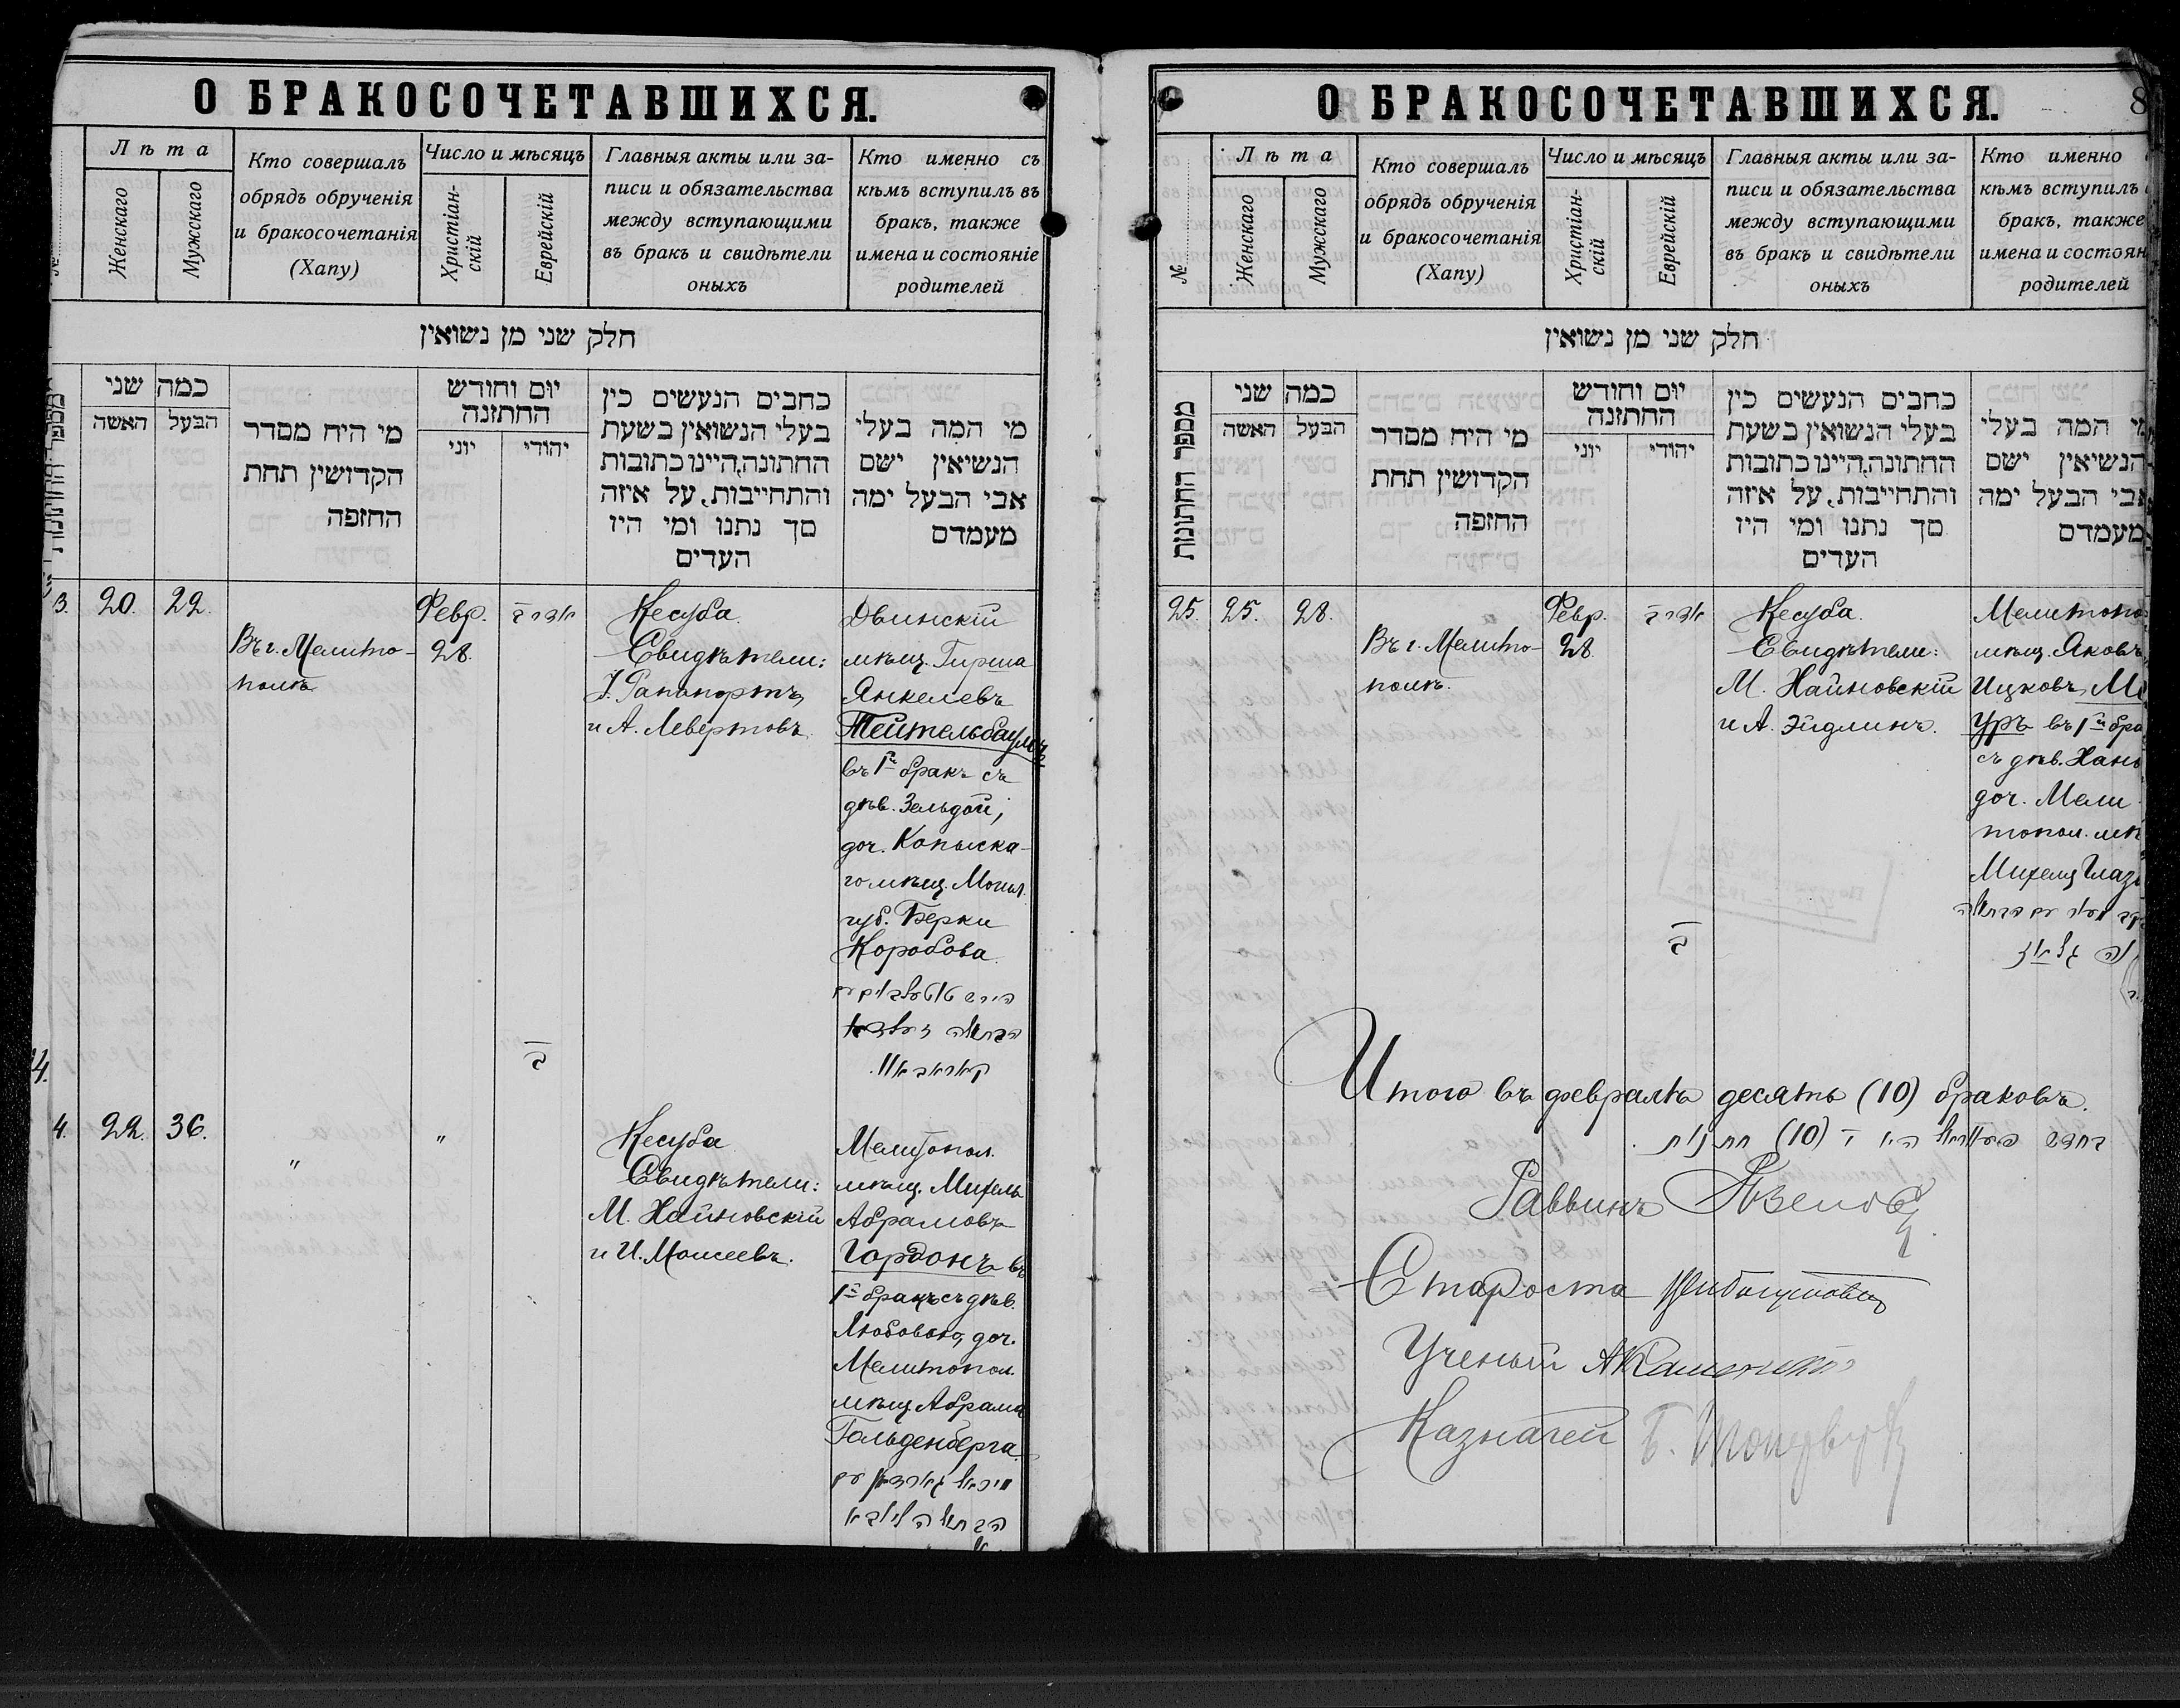 О БРАКОСОЧЕТАВШИХСЯ.
№
Лѣта
Женскаго
Мужскаго
Кто совершалъ
обрядъ обрученія
и бракосочетанія
(Хапу)
Число и мѣсяцъ
Христіан-
скій
Еврейскій
Главныя акты или за-
писи и обязательства
между вступающими
въ бракъ и свидѣтели
оныхъ
Кто именно съ
кѣмъ вступилъ въ
бракъ, также
имена и состояніе
родителей
חלק שני מן נשואין
כמה שני
האשה
הבעל
מי היח מסדר
הקדושין תחת
החזפה
יום וחודש
החתזנה
יוני
יהודי
כחבים הנעשים כין
בעלי הנשואין בשעת
החתונה,היינו כתובות
והתחייבות, על איזה
סך נתנו ומי היז
העדים
מי המה בעלי
הנשיאין ישם
אבי הבעל ימה
מעמדם
3.
20.
22.
Въ г. Мелито-
полѣ
Февр.
28.
אדר ב
Кесуба.
Свидѣтели:
І. Рапопортъ
и А. Левертовъ.
Двинскій
мѣщ. Гирша
Янкелевъ
Тейтельбаумъ
въ 1й бракъ съ
дѣв. Зельдой,
доч. Копыска-
го мѣщ. Могил.
губ. Берки
Коробова.
4.
22.
36.
"
"
ב
Кесуба
Свидѣтели:
М. Хайновскій
и И. Моисеевъ.
Мелитопол.
мѣщ. Михель
Абрамовъ
Гордонъ въ
1й бракъ съ дѣв.
Любовью, доч.
Мелитопол.
мѣщ. Абрама
Гольденберга.
О БРАКОСОЧЕТАВШИХСЯ.
8
№
Лѣта
Женскаго
Мужскаго
Кто совершалъ
обрядъ обрученія
и бракосочетанія
(Хапу)
Число и мѣсяцъ
Христіан-
скій
Еврейскій
Главныя акты или за-
писи и обязательства
между вступающими
въ бракъ и свидѣтели
оныхъ
Кто именно
кѣмъ вступилъ
бракъ, также
имена и состоян
родителей
חלק שני מן נשואין
מספר החתונות
כמה שני
האשה
הבעל
מי היח מסדר
הקדושין תחת
החזפה
יום וחודש
החתזנה
יוני
יהודי
כחבים הנעשים כין
בעלי הנשואין בשעת
החתונה,היינו כתובות
והתחייבות, על איזה
סך נתנו ומי היז
העדים
מי המה בעלי
הנשיאין ישם
אבי הבעל ימה
מעמדם
25.
25.
28.
Въ г. Мелито-
полѣ.
Февр.
28.
אדר ב
ב
Кесуба.
Свидѣтели:
М. Хайновскій
и А. Эйдлинъ.
Мелитопо
мѣщ. Яковъ
Ицковъ
уръ въ 1й бра
съ дѣв. Хань
доч. Мели-
топол. мѣ
Итого въ февралѣ десять (10) браковъ.
בחדש פעװראל היו י (10) חתונות.
Раввинъ
Староста
Ученый
Казначей